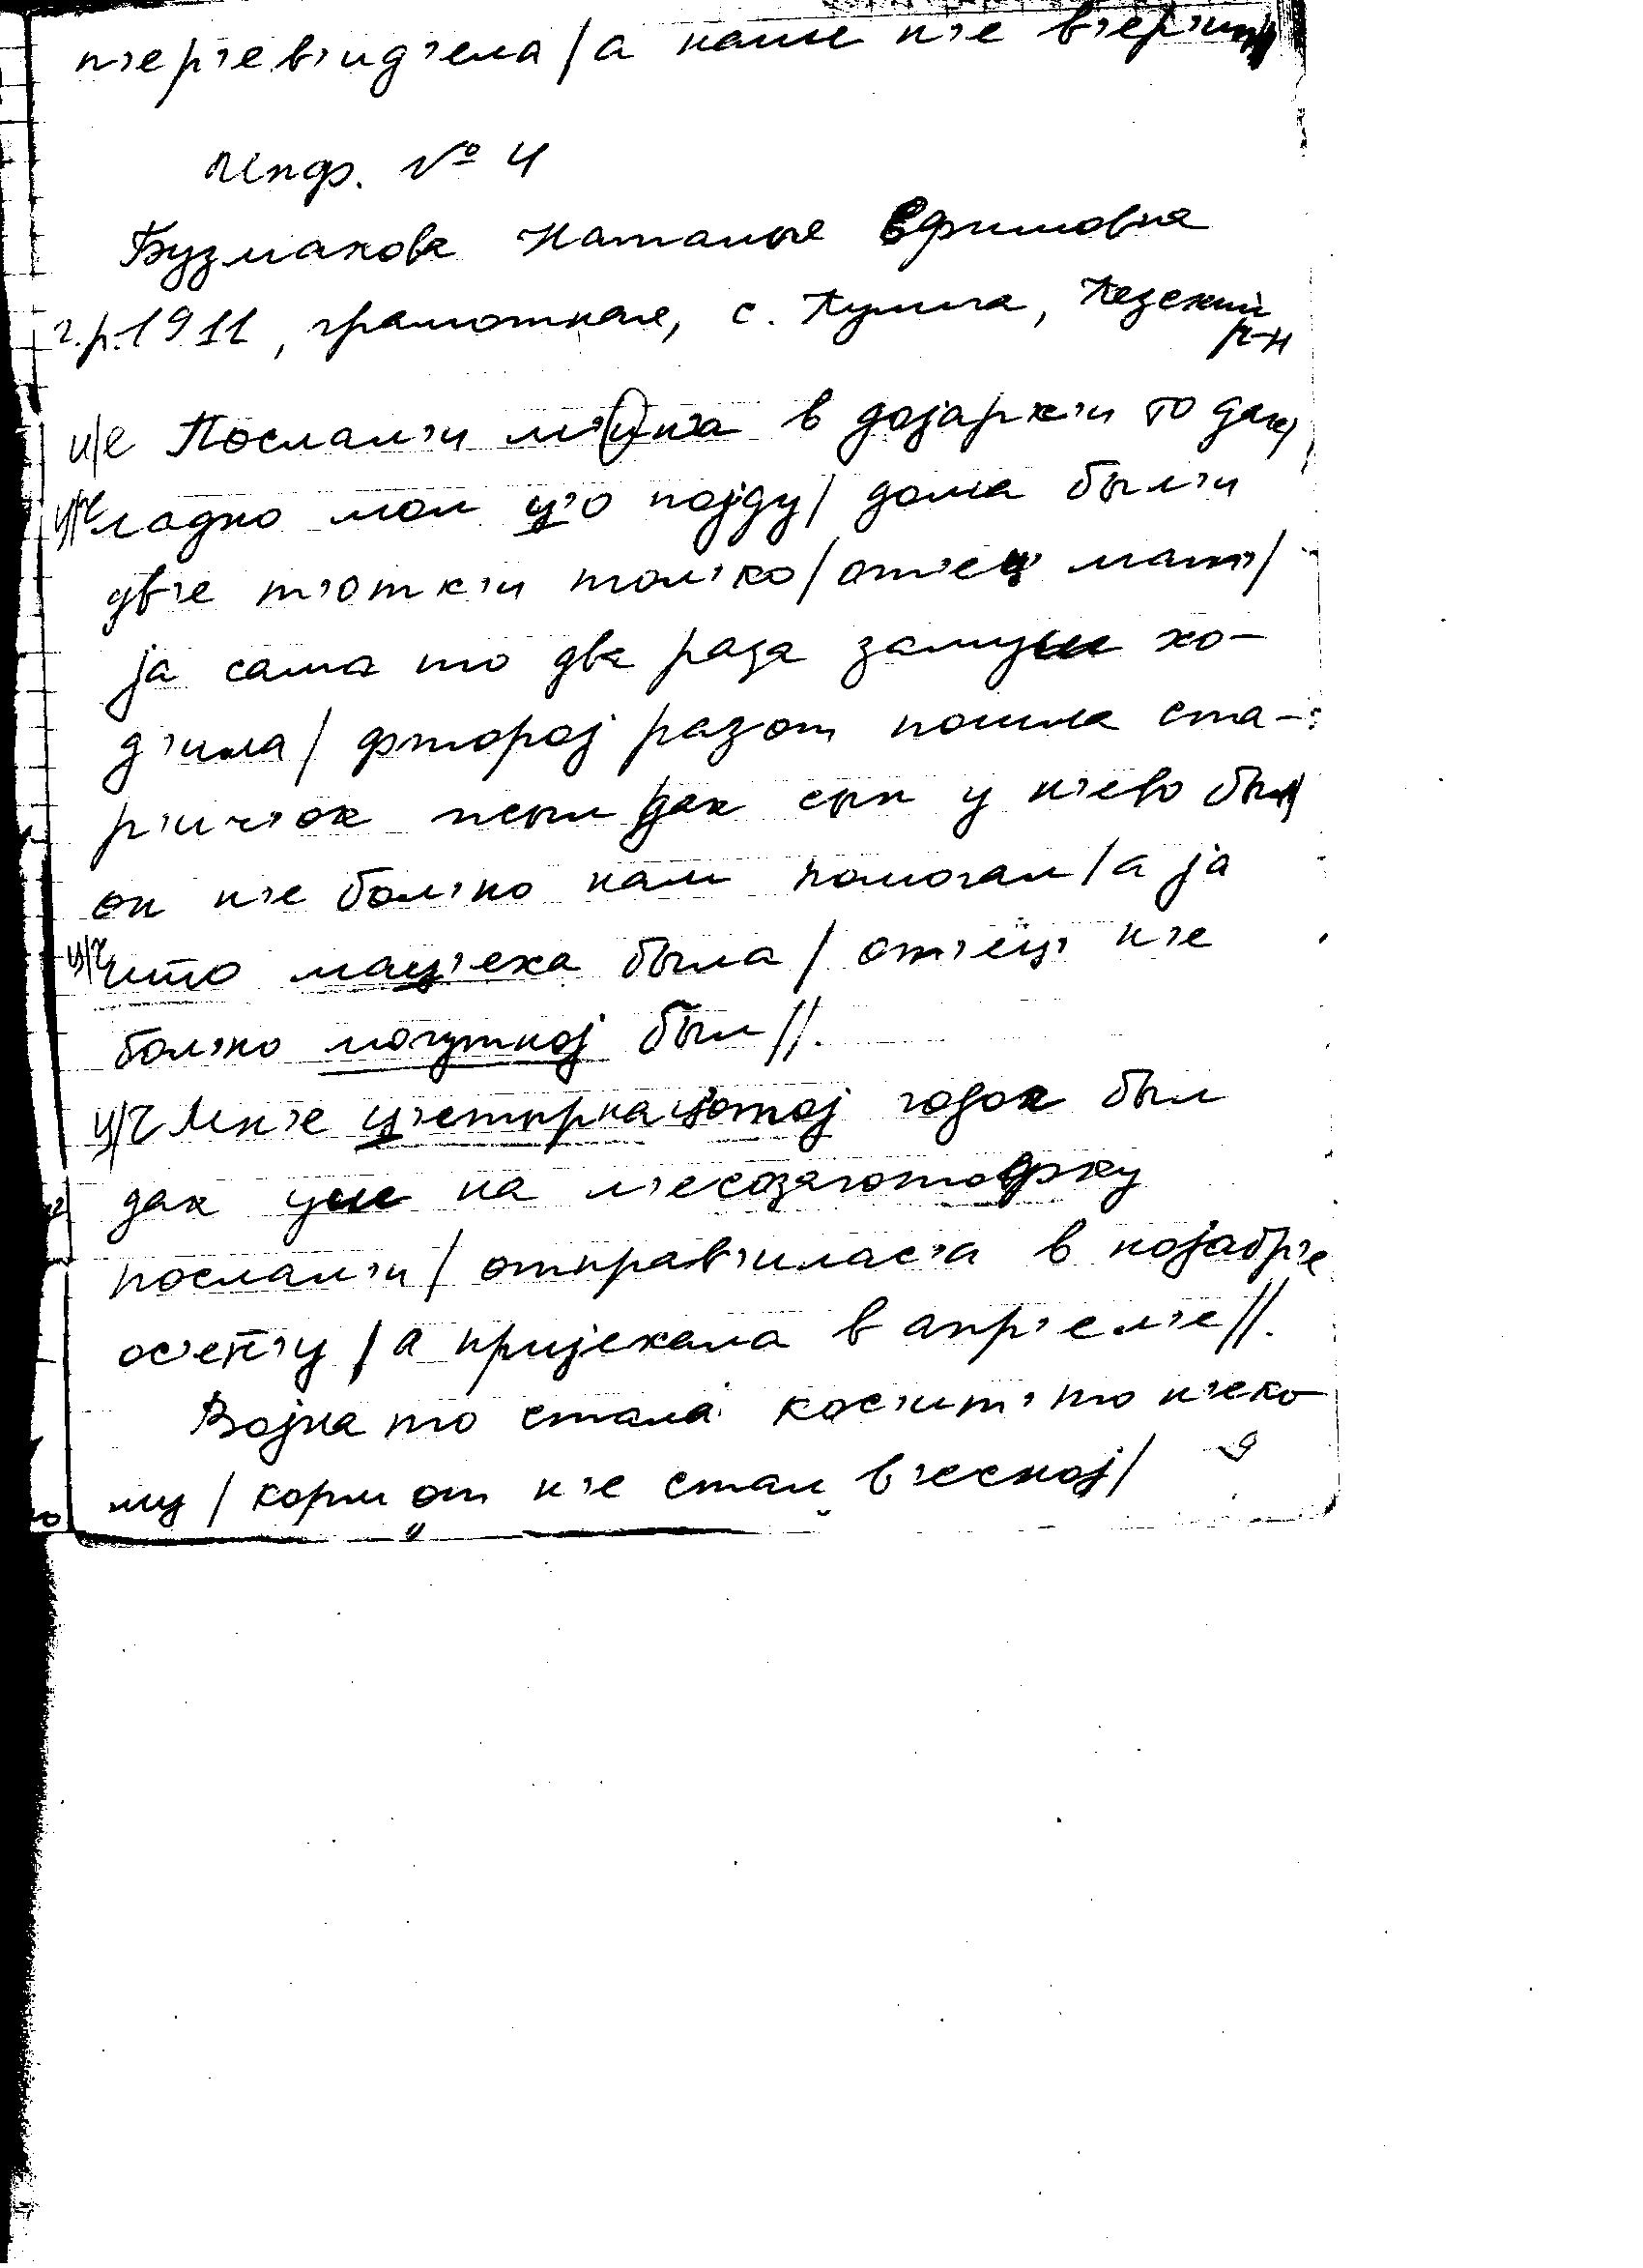 п'ер'ев'ид'ела / а наше н'е в'ер'ит /
Инф. № 4
Бузмакова Наталья Ефимовна
г.р. 1911, грамотная, с. Кулига, Кезский
р-н
и/е Послал'и м'ин'а в дојарк'и то дак /
ц/ч ладно мол ц'о појду / дома был'и
дв'е т'отк'и тол'ко / от'ец' мат' /
ја сама то два раза замуш хо-
д'ила / фторој раз от пошла ста-
р'ич'ок был дак сын у н'ево был
он н'е бол'но нам помогал / а ја
ц/ч што мац'еха была / от'ец' н'е
бол'но могутной был //.
ц/ч Мн'е ц'етырнацатој годок был
дак уш на м'есозаготофку
послал'и / отправ'илас'а в нојабр'е
ос'ен'у / а пријехала в апр'ел'е //.
Војна то стала кос'ит' то н'еко-
му / корм от н'е стал в'есној /